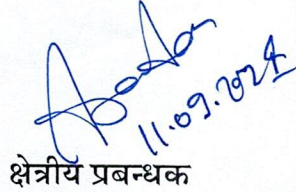 11.09.2024
क्षेत्रीय प्रबन्धक